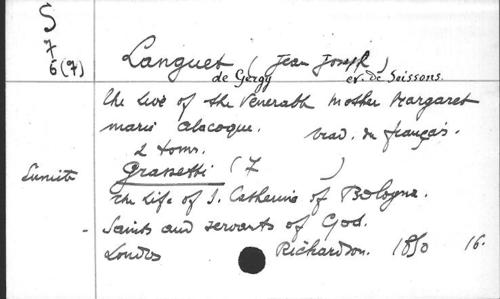 S
7
6(7)
Languet (Jean Joseph)
de Gergy ev. de Soissons.
The live of the Venerable Mother Margaret
marie Alacoque. trad. de français.
2 toms.
Sunite Grassetti (7 )
The Life of S. Catherine of Bologna.
- Saints and servants of God.
Londres Richardson. 1850 16.